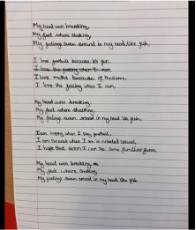 My head was breathing,
My feet where shaking,
My feelings swam around in my head like fish.
I love football because its fun.
I love the feeling when I run.
I love maths because of the
I love the feeling when I run.
My head was breathing,
My feet where shaking,
My feelings swam around in my head like fish.
I am happy when I play football,
I am when I am in a crowd
I hope that soon I can be
My head was breathing,
My feet where shaking,
My feelings swam around in my head like fish.